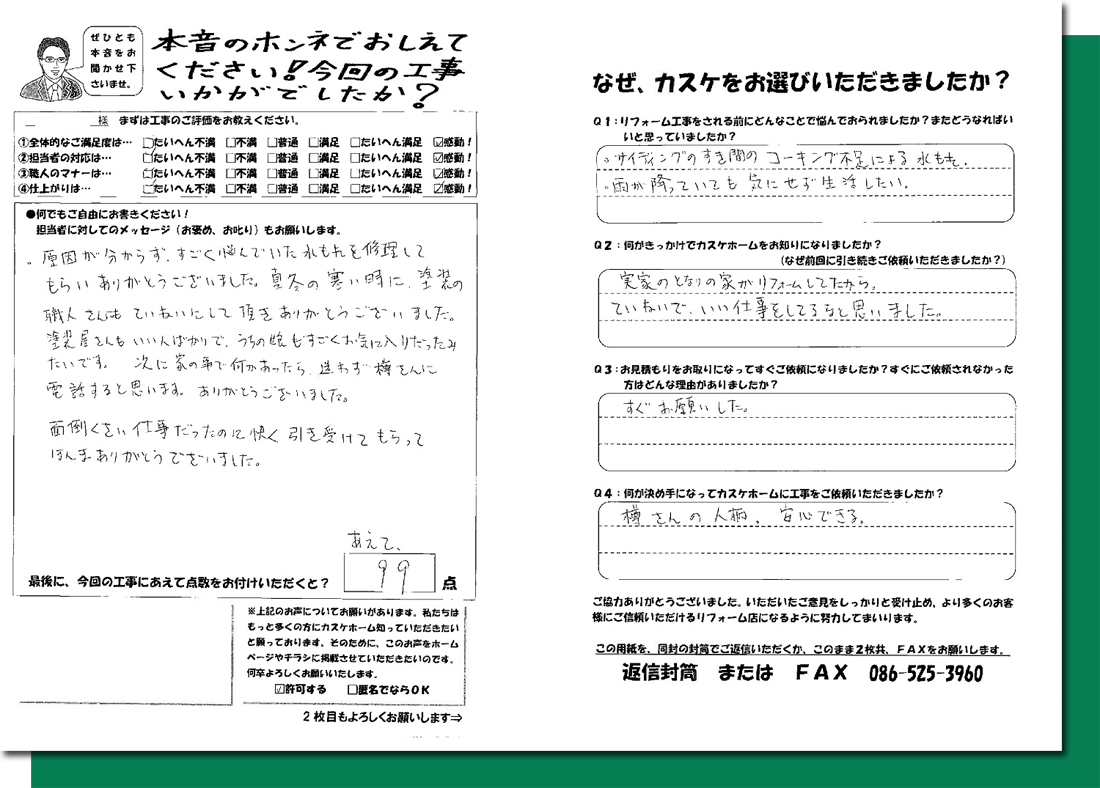 ぜひとも
本音をお
聞かせ下
さいませ。
本音のホンネでおしえて
ください!今回の工事
いかがでしたか?
様 まずは工事のご評価をお教えください。
①全体的なご満足度は… □たいへん不満 □不満 □普通 □満足 □たいへん満足 ☑感動!
②担当者の対応は… □たいへん不満 □不満 □普通 □満足 □たいへん満足 ☑感動!
③職人のマナーは… □たいへん不満 □不満 □普通 □満足 □たいへん満足 ☑感動!
④仕上がりは… □たいへん不満 □不満 □普通 □満足 □たいへん満足 ☑感動!
●何でもご自由にお書きください!
担当者に対してのメッセージ(お褒め、お叱り)もお願いします。
。原因が分からず、すごく悩んでいた水もれを修理して
もらいありがとうございました。真冬の寒い時に、塗装の
職人さんもていねいにして頂きありがとうございました。
塗装屋さんもいい人ばかりで、うちの娘もすごくお気に入りだったみ
たいです。 次に家の事で何かあったら、迷わず樽さんに
電話すると思います。ありがとうございました。
面倒くさい仕事だったのに快く引き受けてもらって
ほんまありがとうございました。
あえて、
最後に、今回の工事にあえて点数をお付けいただくと? 99 点
※上記のお声についてお願いがあります。私たちは
もっと多くの方にカスケホーム知っていただきたい
と願っております。そのために、このお声をホーム
ページやチラシに掲載させていただきたいのです。
何卒よろしくお願いいたします。
☑許可する □匿名でならOK
2枚目もよろしくお願いします⇒
なぜ、カスケをお選びいただきましたか?
Q1:リフォーム工事をされる前にどんなことで悩んでおられましたか?またどうなればい
いと思っていましたか?
。サイディングのすき間のコーキング不足による水もれ。
。雨が降っていても気にせず生活したい。
Q2:何がきっかけでカスケホームをお知りになりましたか?
(なぜ前回に引き続きご依頼いただきましたか?)
実家のとなりの家がリフォームしてたから。
ていねいで、いい仕事をしてるなと思いました。
Q3:お見積もりをお取りになってすぐご依頼になりましたか?すぐにご依頼されなかった
方はどんな理由がありましたか?
すぐお願いした。
Q4:何が決め手になってカスケホームに工事をご依頼いただきましたか?
樽さんの人柄。安心できる。
ご協力ありがとうございました。いただいたご意見をしっかりと受け止め、より多くのお客
様にご信頼いただけるリフォーム店になるように努力してまいります。
この用紙を、同封の封筒でご返信いただくか、このまま2枚共、FAXをお願いします。
返信封筒 または FAX 086-525-3960